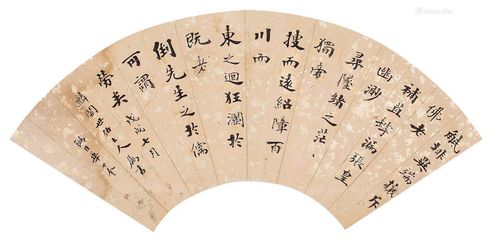 觝排異端攘斥
佛老
補苴罅漏張皇
幽眇
尋墜緒之茫〻
獨旁
搜而遠紹障百
川而
東之迴狂瀾於
既
倒先生之於儒
可謂
勞矣 戊戌七月
世伯大人